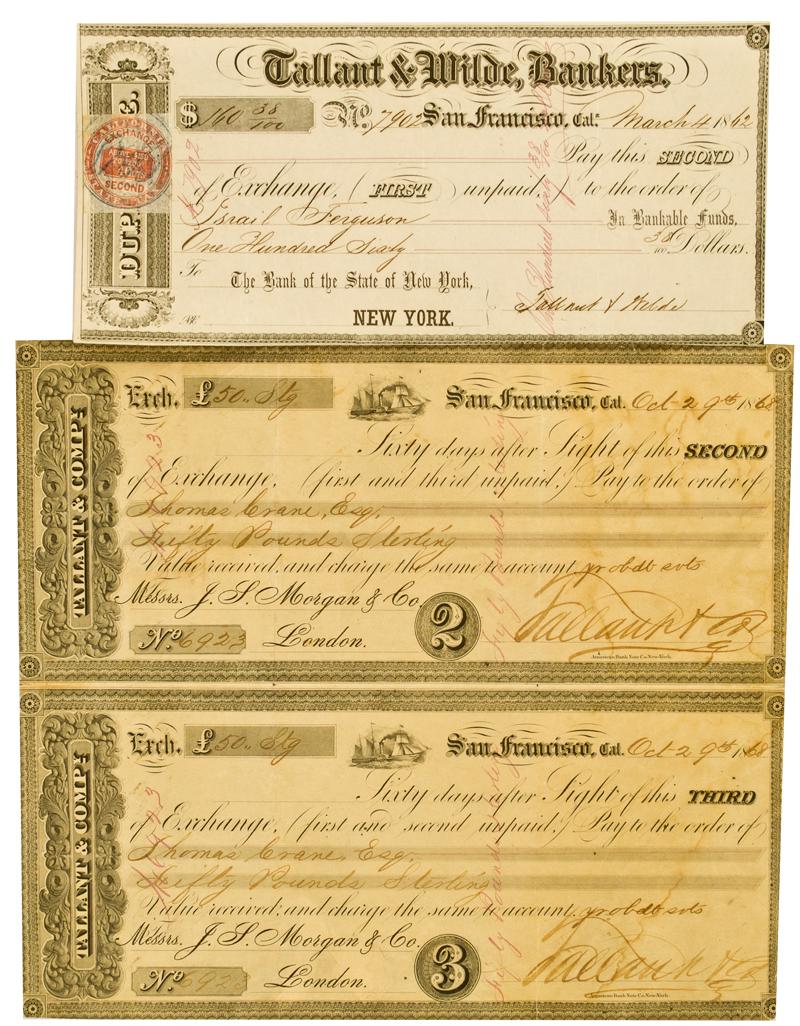 Tallant & Wilde, Bankers.
$ 160 38/100 No. 7902 San Francisco, Cal. March 4 1862
Pay this SECOND
of Exchange, (FIRST unpaid,) to the order of
Israil Ferguson In Bankable Funds,
One Hundred Sixty 38/100 Dollars.
To The Bank of the State of New York,
NEW YORK.
Tallant & Wilde
EXCHANGE
SECOND
TALLANT & COMPY
Exch. £50.. Stg San Francisco, Cal. Oct 29th 1868
Sixty days after Sight of this SECOND
of Exchange, (first and third unpaid,) Pay to the order of
Thomas Crane, Esq.
Fifty Pounds Sterling
Value received, and charge the same to account, yr obdt svts
Messrs. J. S. Morgan & Co.
No 6923 London. 2
Tallant & Co
American Bank Note Co. New-York.
TALLANT & COMPY
Exch. £50.. Stg San Francisco, Cal. Oct 29th 1868
Sixty days after Sight of this THIRD
of Exchange, (first and second unpaid,) Pay to the order of
Thomas Crane, Esq.
Fifty Pounds Sterling
Value received, and charge the same to account, yr obdt svts
Messrs. J. S. Morgan & Co.
No 6923 London. 3
Tallant & Co
American Bank Note Co. New-York.